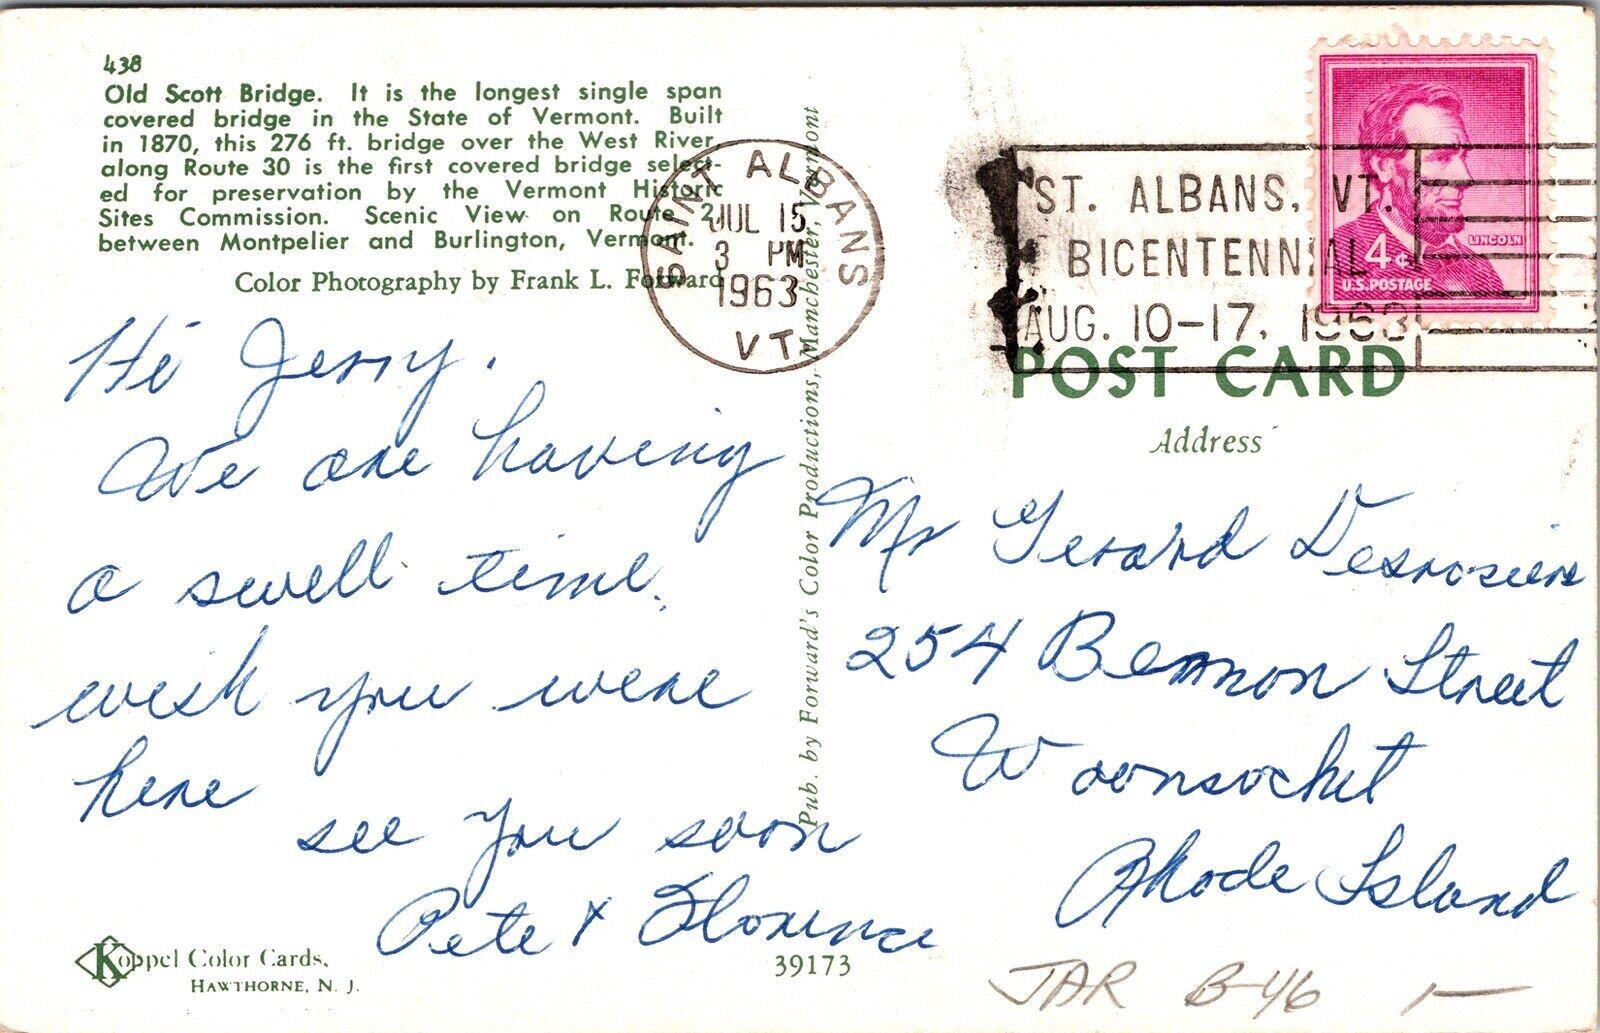 438
Old Scott Bridge. It is the longest single span
covered bridge in the State of Vermont. Built
in 1870, this 276 ft. bridge over the West River
along Route 30 is the first covered bridge select-
ed for preservation by the Vermont Historic
Sites Commission. Scenic View on Route 2,
between Montpelier and Burlington, Vermont.
Color Photography by Frank L. Forward
SAINT ALBANS
JUL 15
3 PM
1963
VT.
ST. ALBANS, VT.
BICENTENNIAL
AUG. 10-17, 1963
LINCOLN
4¢
U.S. POSTAGE
POST CARD
Address
Hi Jerry.
We are having
a swell time.
wish you were
here
see you soon
Pete & Florence
Pub. by Forward's Color Productions, Manchester, Vermont
Mr Gerard Desrosiers
254 Bernon Street
Woonsocket
Rhode Island
Koppel Color Cards,
HAWTHORNE, N. J.
39173
JAR B-46 1-